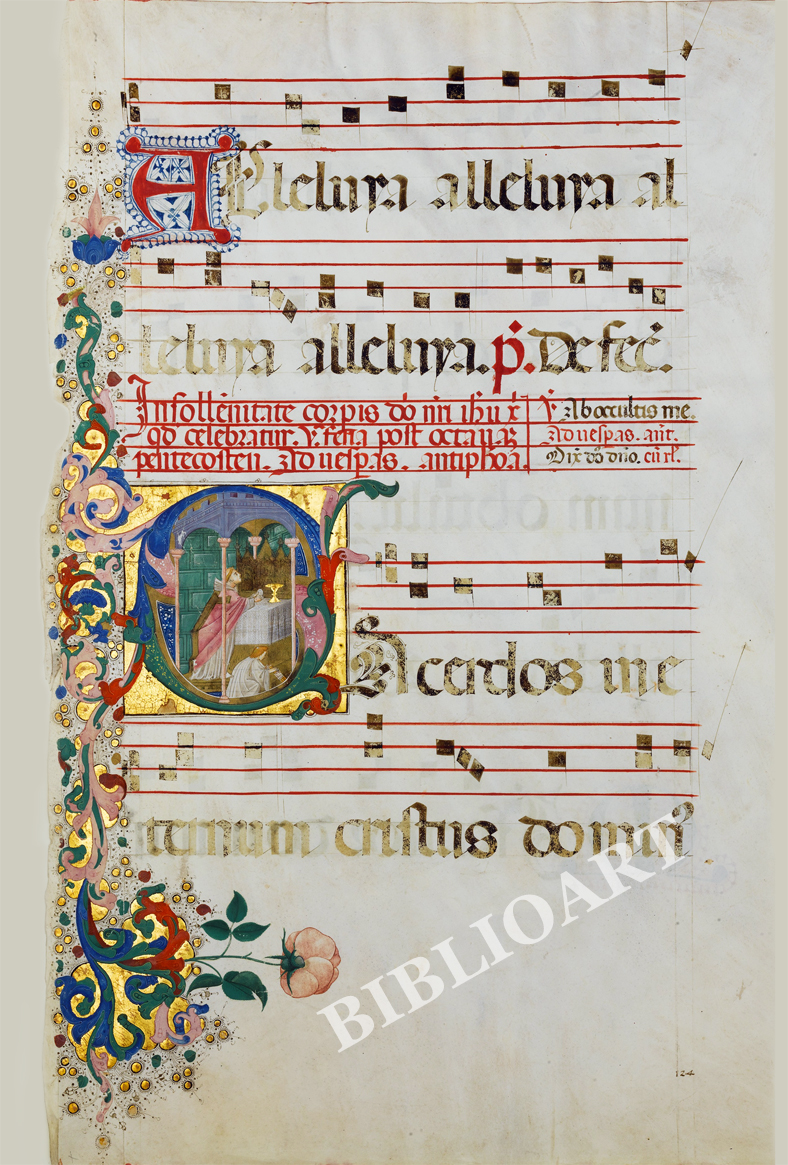 Alleluya alleluya al
leluya alleluya. p̄. De fec̄.
In sollēnitate corꝑis dn̄i nr̄i ih̄u x̄
qd celebratur. v. feria post octauas
pentecosten. Ad uesꝑas. antiphona.
℣ Ab occultis me.
Ad uesp̄as. ant.
Dix̄ do᷎ dn̄o. cū rl̄.
SAcerdos in e
ternum cristus domin᷒
BIBLIOART
124